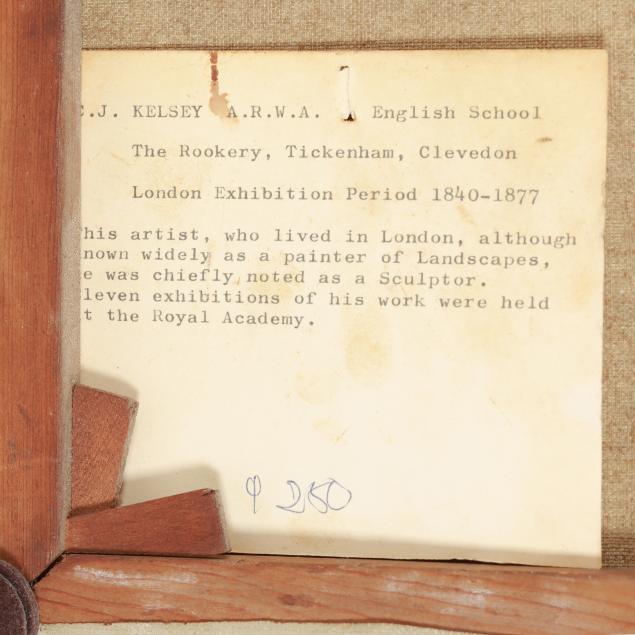 C.J. KELSEY A.R.W.A. English School
The Rookery, Tickenham, Clevedon
London Exhibition Period 1840-1877
his artist, who lived in London, although
nown widely as a painter of Landscapes,
e was chiefly noted as a Sculptor.
leven exhibitions of his work were held
t the Royal Academy.
250